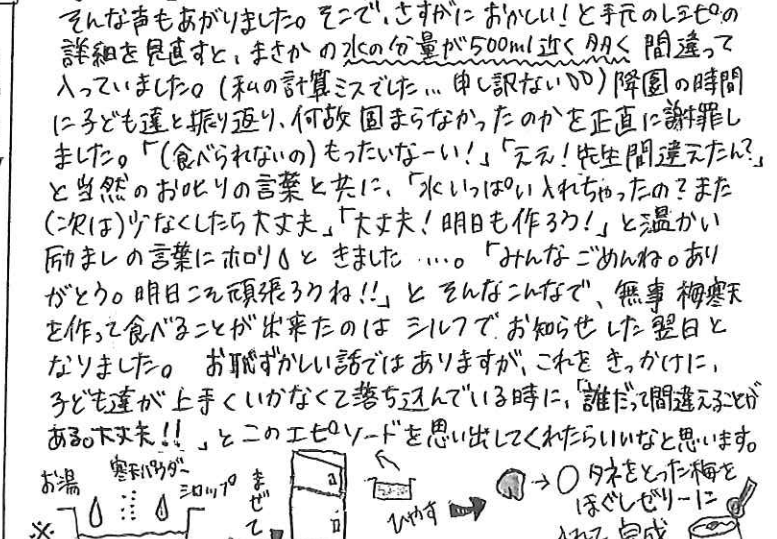 そんな声もあがりました。そこで、さすがにおかしい!と手元のレエピの
詳細を見直すと、まさかの水の分量が500ml近く多く間違って
入っていました。(私の計算ミスでした…申し訳ない)降園の時間
に子ども達と振り返り、何故固まらなかったのかを正直に謝罪し
ました。「(食べられないの)もったいなーい!」「ええ!先生間違えたん?」
と当然のお叱りの言葉と共に、「水いっぱい入れちゃったの?また
(次は)少なくしたら大丈夫」「大丈夫!明日も作ろう!」と温かい
励ましの言葉にホロリときました….。「みんなごめんね。あり
がとう。明日こそ頑張ろうね!!」とそんなこんなで、無事梅寒天
を作って食べることが出来たのはシルフでお知らせした翌日と
なりました。お恥ずかしい話ではありますが、これをきっかけに、
子ども達が上手くいかなくて落ち込んでいる時に、「誰だって間違えることが
ある。大丈夫!!」とこのエピソードを思い出してくれたらいいなと思います。
お湯
寒天パウダー
シロップ
※
まぜて
ひやす
タネをとった梅を
ほぐしゼリーに
入れて完成